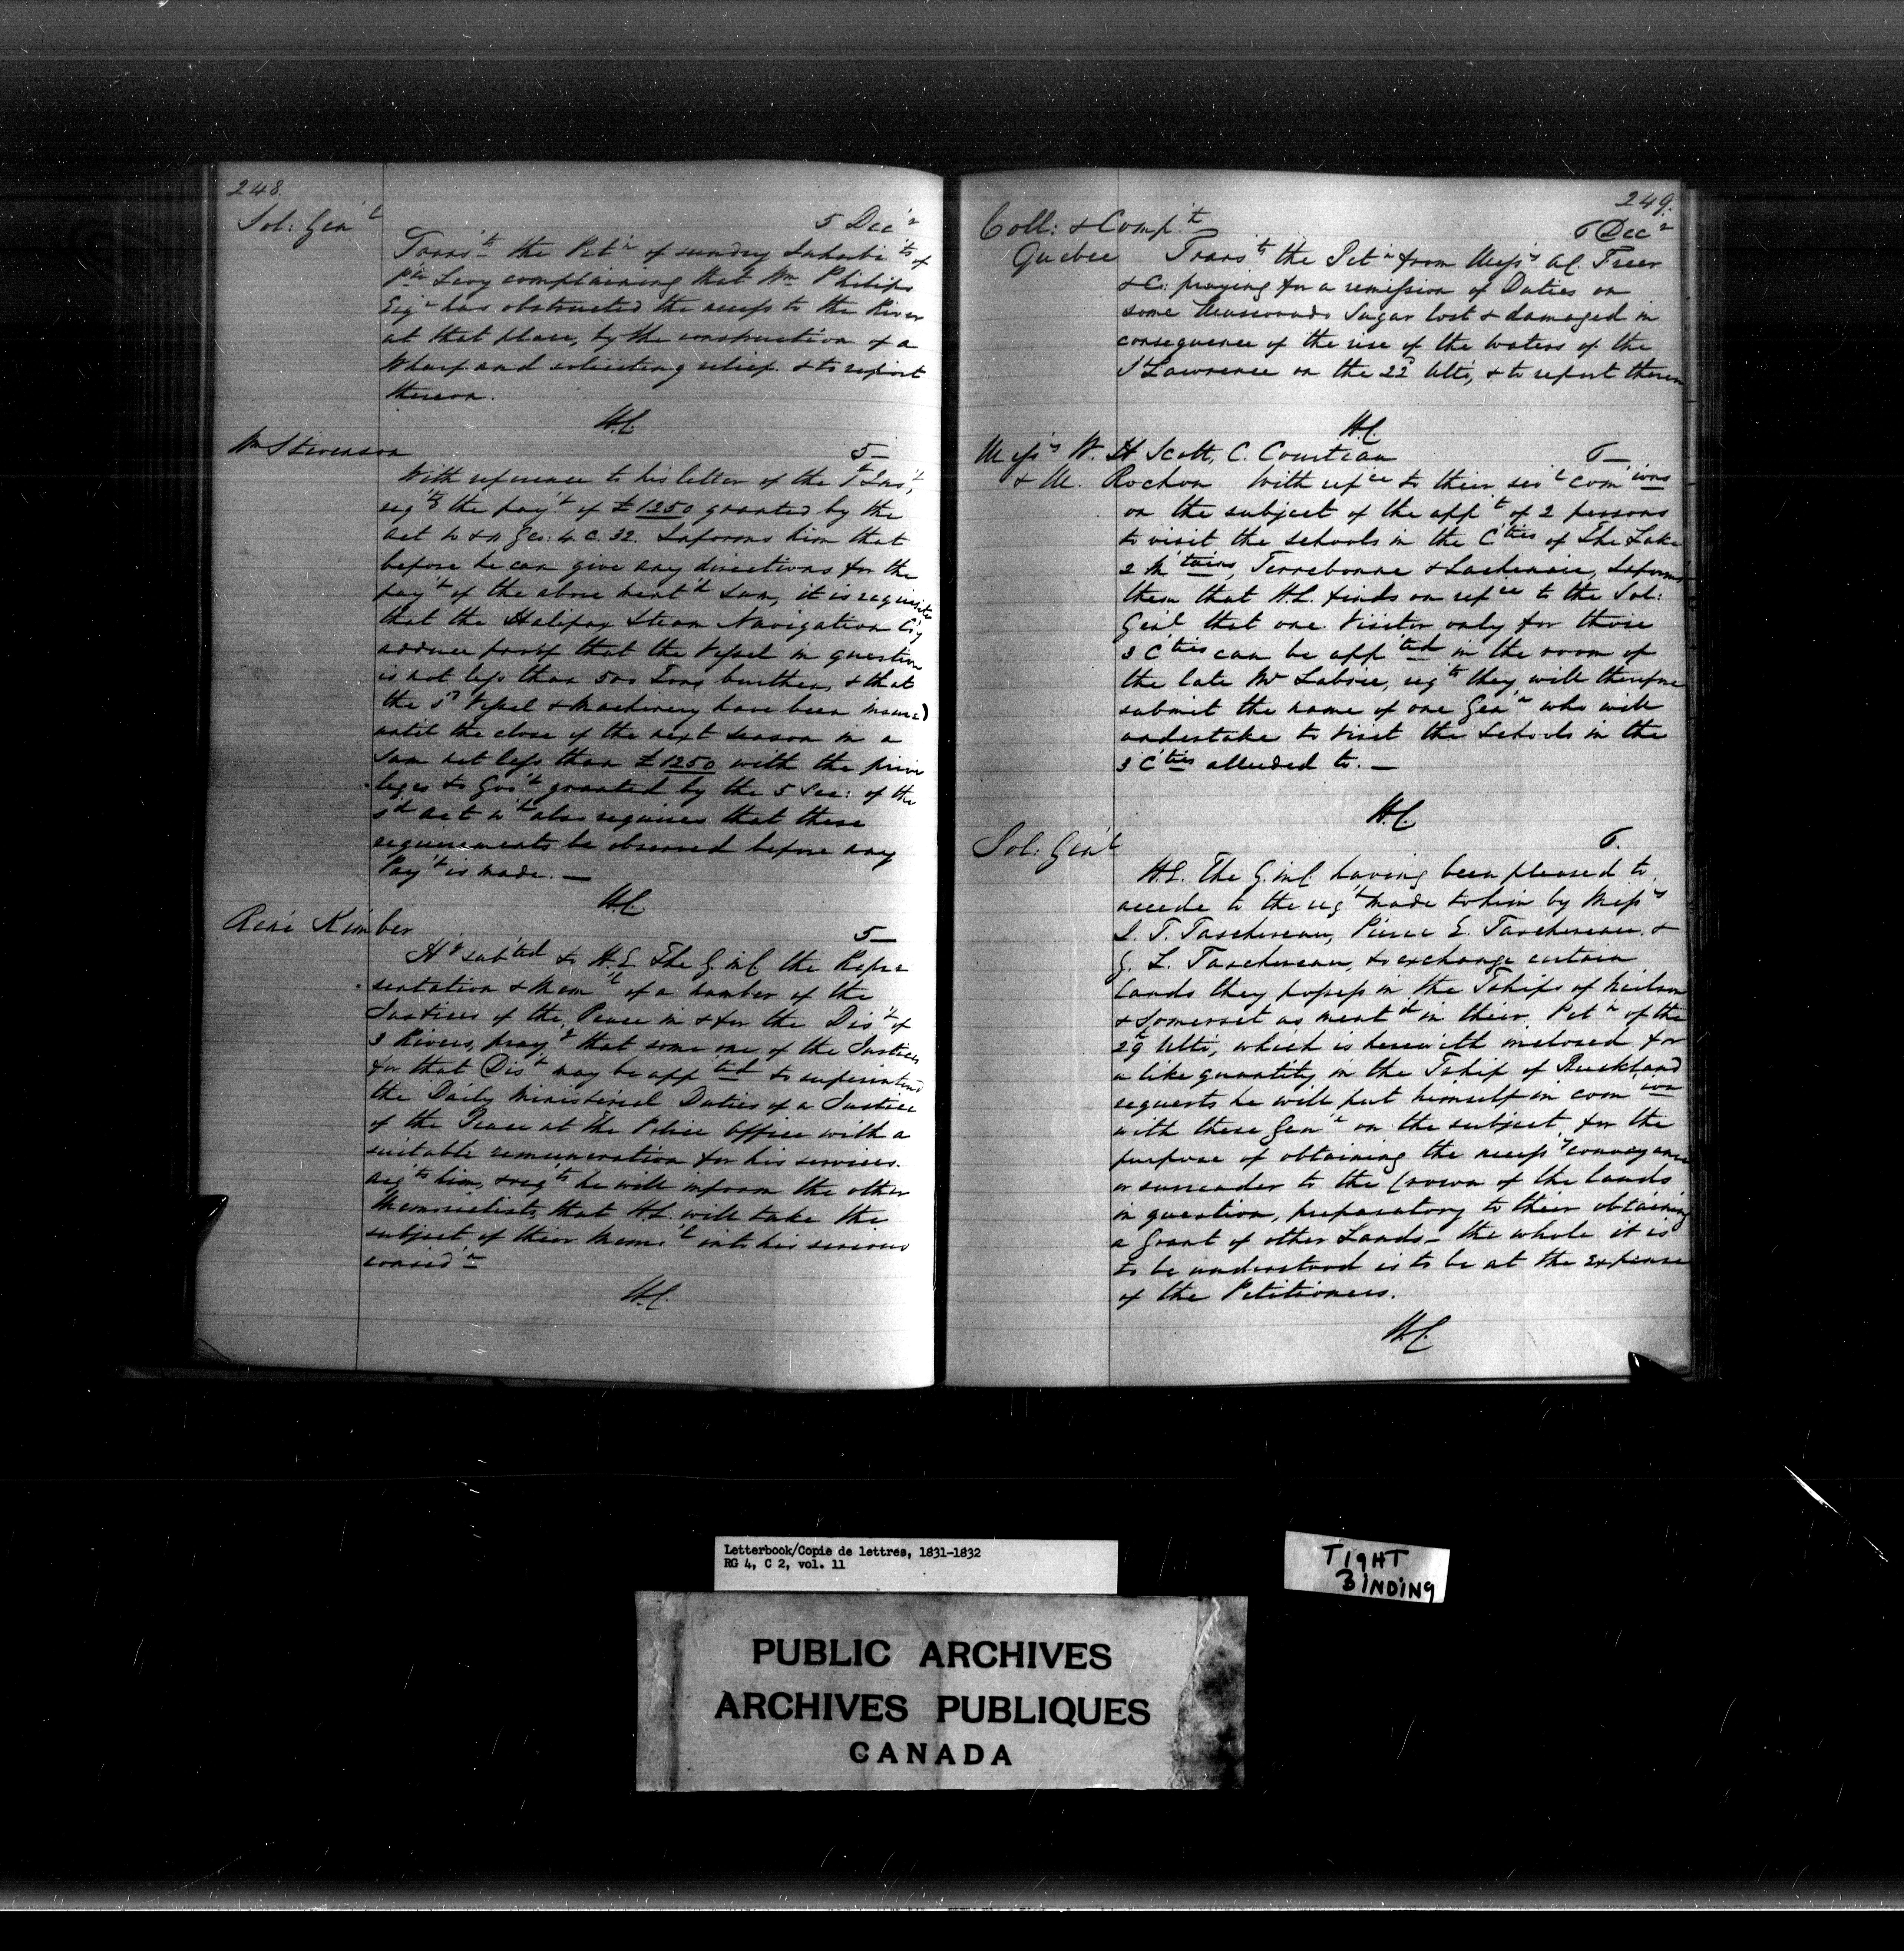 248.
Sol: Gen'l
5 Dec'r
Trans'ts the Pet'n of sundry Inhabi'ts of
P'te Levy complaining that Wm Philips
Esq'r has obstructed the access to the River
at that place, by the construction of a
Wharf and soliciting relief. & to report
thereon.
H.C.
Wm Stevenson
5—
With reference to his letter of the 1st Ins't,
reg'g the pay't of £1250 granted by the
Act 10 & 11 Geo: 4 C. 32. Informs him that
before he can give any directions for the
pay't of the above ment'd sum, it is requisite
that the Halifax Steam Navigation Co'y
adduce proof that the Vessel in question
is not less than 500 Tons burthen, & that
the s'd Vessel & Machinery have been insured
until the close of the next season in a
sum not less than £1250 with the privi
leges to Gov't granted by the 5 Sec: of the
s'd Act w'h also requires that these
requirements be observed before any
Pay't is made. —
H.C.
René Kimber
5—
H'g sub'ted to H.E. The G. in C. the Repre
sentation & Mem'l of a number of the
Justices of the Peace in & for the Dis't of
3 Rivers, pray'g that some one of the Justices
for that Dis't may be app'ted to superintend
the Daily Ministerial Duties of a Justice
of the Peace at the Police Office with a
suitable remuneration for his services.
acq'ts him, & req'ts he will inform the other
Memorialists, that H.E. will take the
subject of their Mem'l into his serious
consid'n
H.C.
249.
Coll: & Comp't
6 Dec'r
Quebec Trans'ts the Pet'n from Mess'rs Al. Freer
& C: praying for a remission of Duties on
some Muscovado Sugar lost & damaged in
consequence of the rise of the waters of the
St Lawrence on the 22d Ulto, & to report thereon
H.C.
Mess'rs W. H Scott, C. Courteau
6—
& M. Rochon With ref'ce to their sev'l com'ions
on the subject of the app't of 2 persons
to visit the schools in the C'ties of The Lake
2 M'tains, Terrebonne & Lachenaie, Informs
them that H.E. finds on ref'ce to the Sol:
Gen'l that one Visitor only for those
3 C'ties can be app'ted in the room of
the late Mr Labrie, req'ts they will therefore
submit the name of one Gen'n who will
undertake to visit the Schools in the
3 C'ties alluded to. —
H.C.
Sol: Gen'l
6.
H.E. The G. in C. having been pleased to
accede to the req't made to him by Mess'rs
J. T. Taschereau, Pierre E. Taschereau &
G. L. Taschereau, to exchange certain
Lands they possess in the T'ships of Neilson
& Somerset as ment'd in their Pet'n of the
29th Ulto, which is herewith inclosed for
a like quantity in the T'ship of Buckland
requests he will put himself in com'ion
with these Gen'n on the subject for the
purpose of obtaining the necess'y conveyance
or surrender to the Crown of the lands
in question, preparatory to their obtaining
a Grant of other Lands — the whole it is
to be understood is to be at the expense
of the Petitioners.
H.C.
Letterbook/Copie de lettres, 1831-1832
RG 4, C 2, vol. 11
TIGHT
BINDING
PUBLIC ARCHIVES
ARCHIVES PUBLIQUES
CANADA